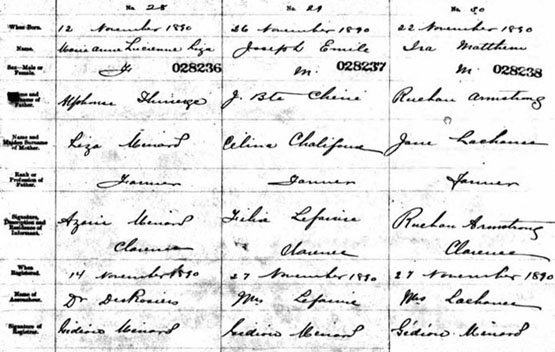 No. 28 No. 29 No. 30
When Born. 12 November 1890 26 November 1890 22 November 1890
Name. Marie Anne Lucienne Liza Joseph Emile Ira Matthew
Sex—Male or Female. F. 028236 M. 028237 M. 028238
Name and Surname of Father. Alphonse J. Bte Chéné Ruchan Armstrong
Name and Maiden Surname of Mother. Liza Ménard Célina Chalifoux Jane Lachance
Rank or Profession of Father. Farmer Farmer Farmer
Signature, Description and Residence of Informant. Azarie Ménard Lefaivre Ruchan Armstrong
Clarence Clarence Clarence
When Registered. 14 November 1890 27 November 1890 27 November 1890
Name of Accoucheur. Dr DesRosiers Mrs Lefaivre Mrs Lachance
Signature of Registrar. Gédéon Ménard Gédéon Ménard Gédéon Ménard